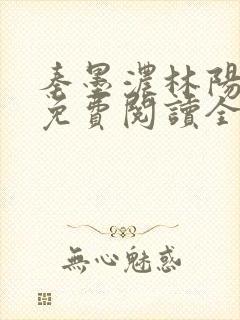 秦墨濃林陽
免費閱讀全
無心魅惑